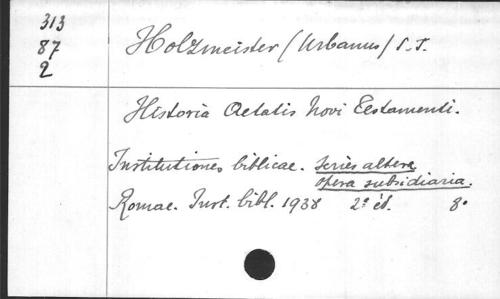 313
87
2
Holzmeister (Urbanus) S.J.
Historia Aetatis Novi Testamenti.
Institutiones biblicae. Series altera
opera subsidiaria.
Romae. Inst. bibl. 1938 2e éd. 8°